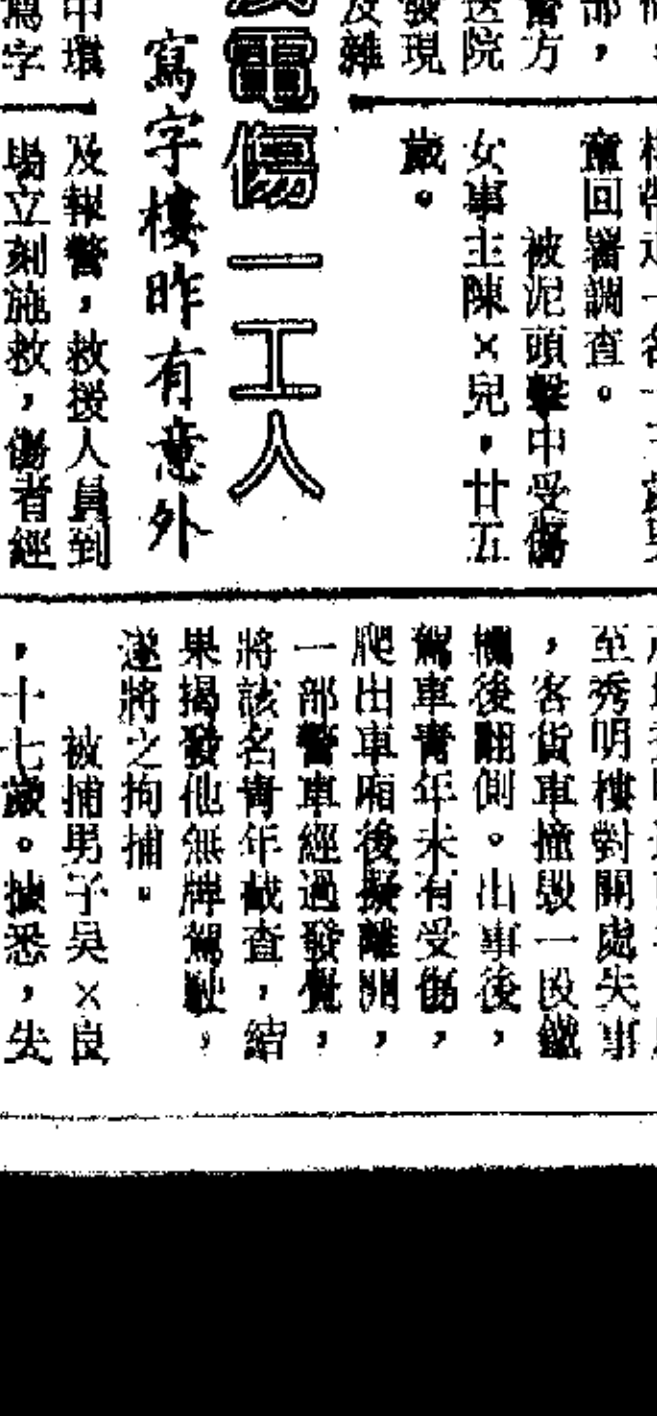 部，
警方
送院
發現
及雜
童回署調查。
被泥頭擊中受傷
女事主陳×兒，廿五
歲。
電傷一工人
寫字樓昨有意外
中環
寫字
及報警，救援人員到
場立刻施救，傷者經
至秀明樓對開處失事
，客貨車撞毀一段鐵
欄後翻側。出事後，
駕車青年未有受傷，
爬出車廂後擬離開，
一部警車經過發覺，
將該名青年截查，結
果揭發他無牌駕駛，
遂將之拘捕。
被捕男子吳×良
，十七歲。據悉，失